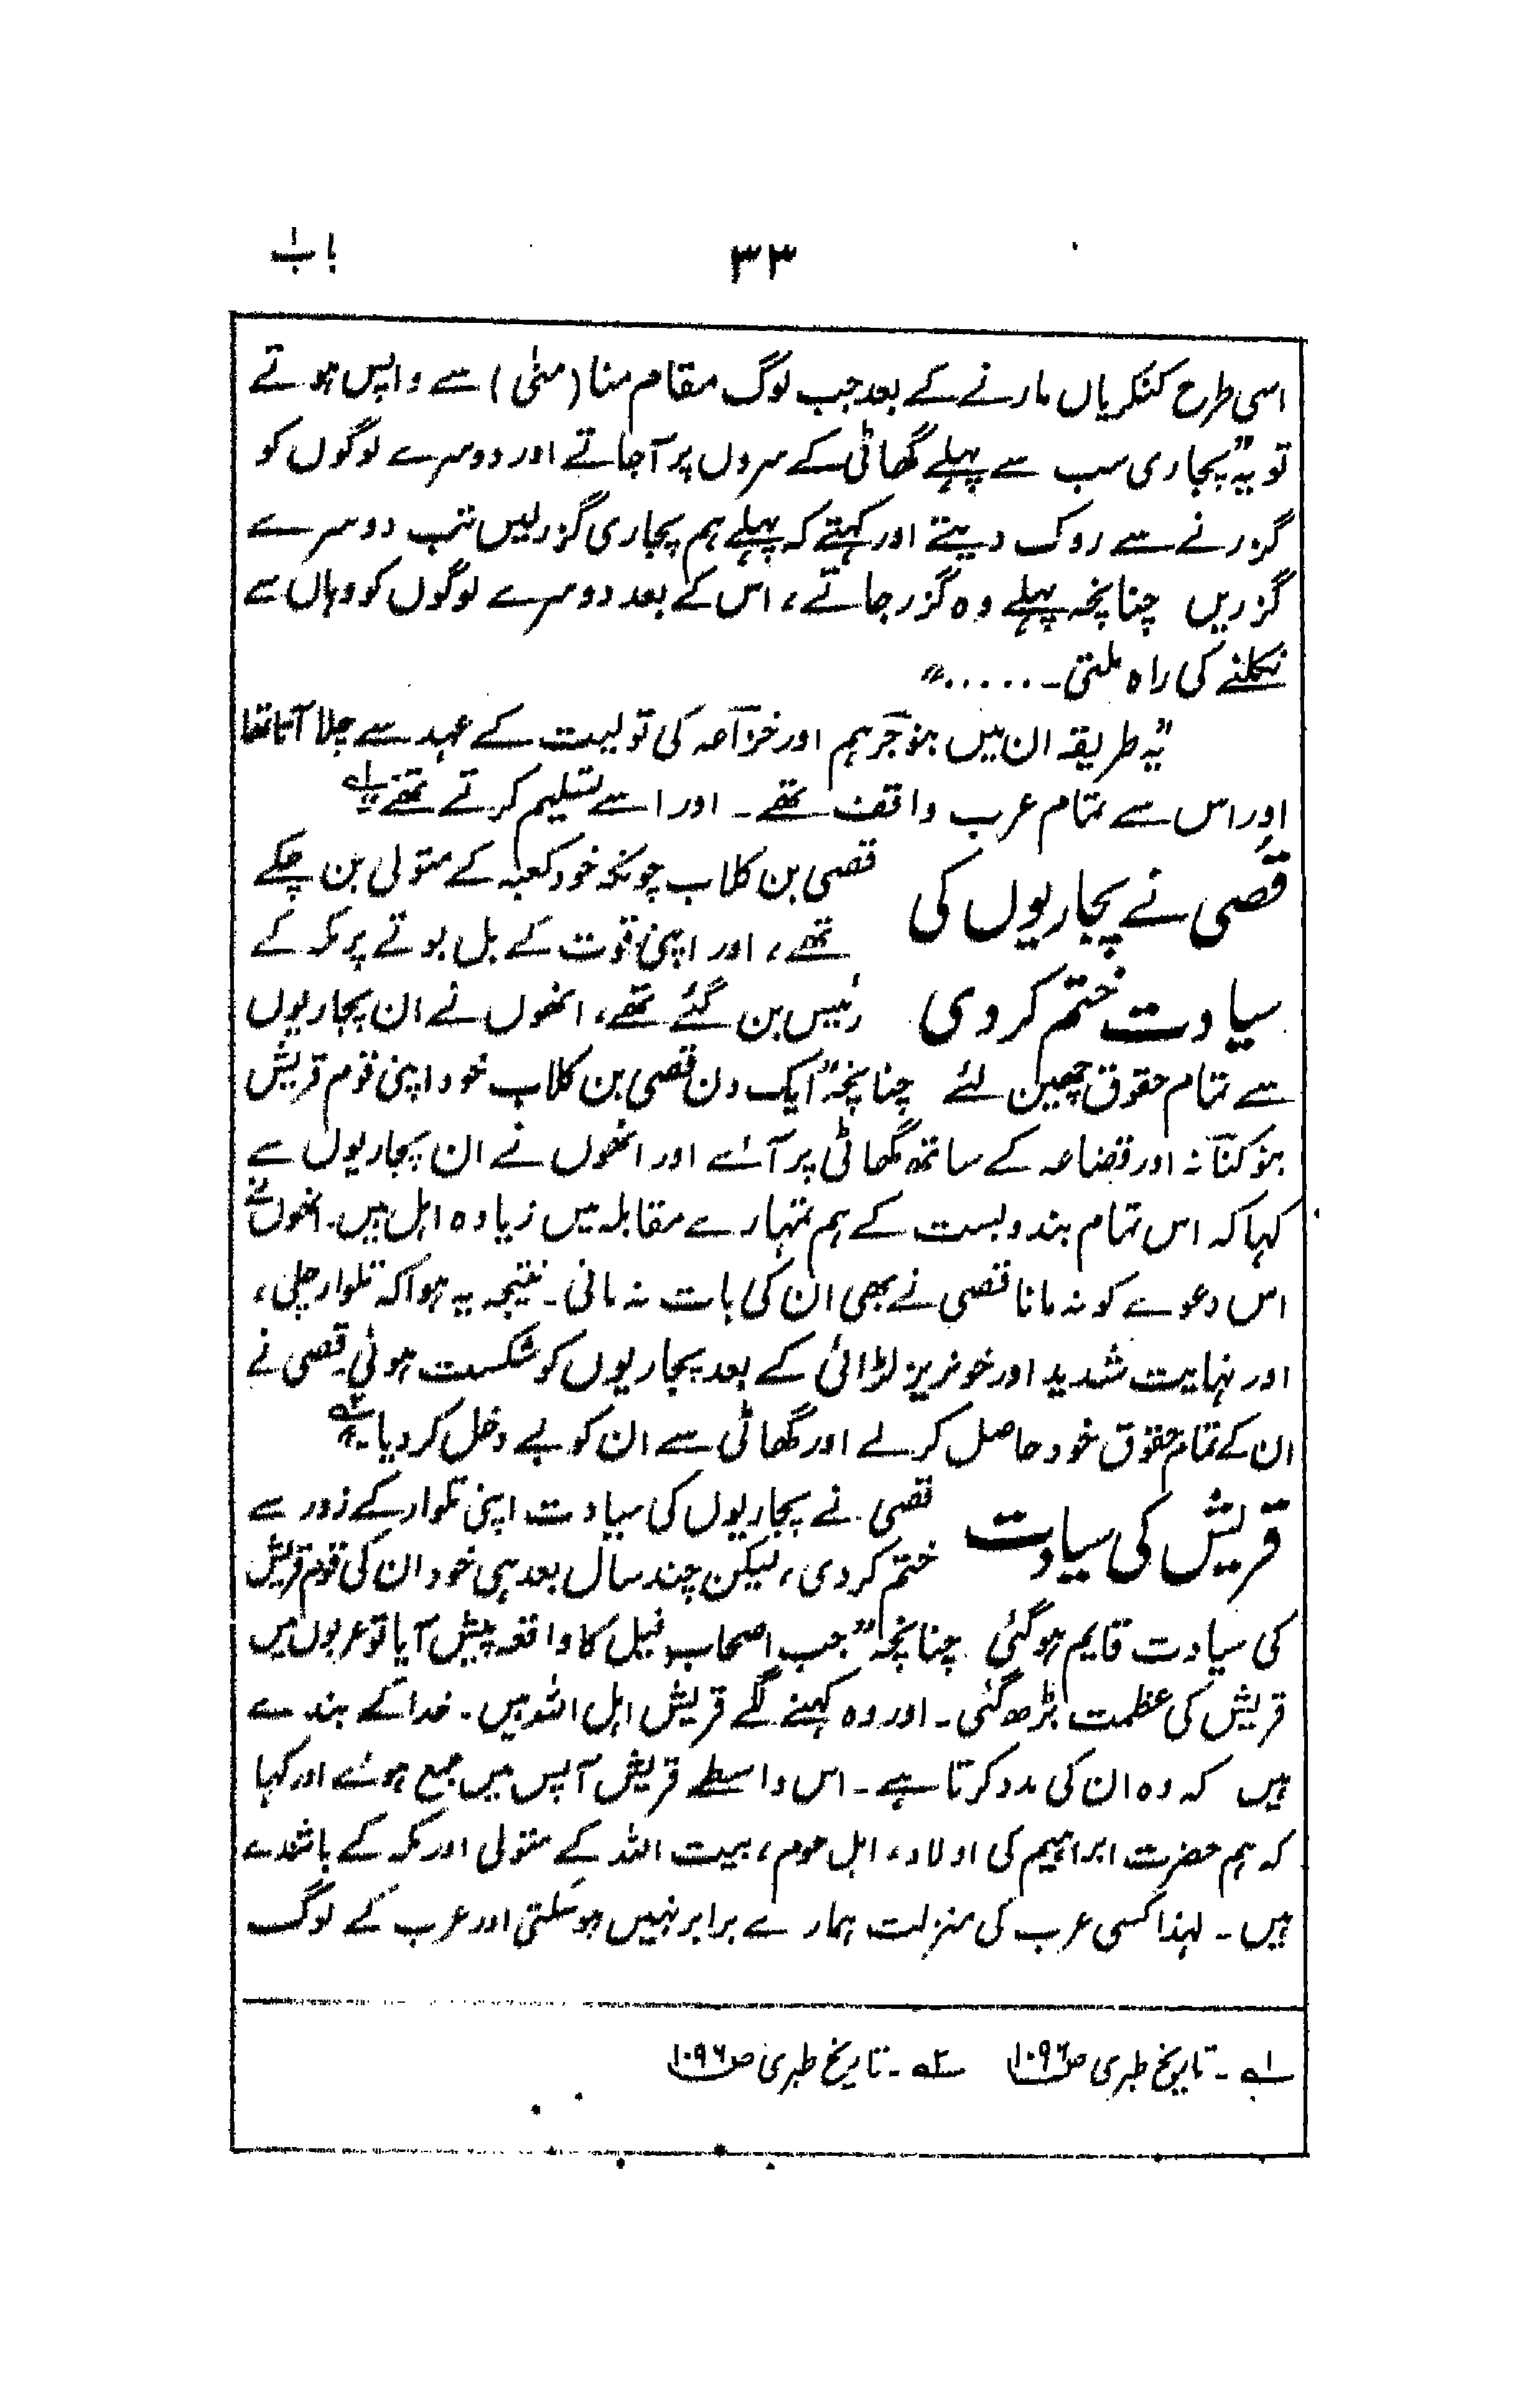 باب۱
۳۳
اسی طرح کنکریاں مارنے کے بعد جب لوگ مقام منا (منٰی) سے واپس ہوتے
تو یہ "پجاری سب سے پہلے گھاٹی کے سروں پر آجاتے اور دوسرے لوگوں کو
گزرنے سے روک دیتے اور کہتے کہ پہلے ہم پجاری گزرلیں تب دوسرے
گزریں چنانچہ پہلے وہ گزر جاتے، اس کے بعد دوسرے لوگوں کو وہاں سے
نکلنے کی راہ ملتی۔ ......"
"یہ طریقہ ان میں بنو جرہم اور خزاعہ کی تولیت کے عہد سے چلا آتا تھا
اور اس سے تمام عرب واقف تھے۔ اور اسے تسلیم کرتے تھے"۱؎
قصی نے پجاریوں کی
سیادت ختم کر دی
قصی بن کلاب چونکہ خود کعبہ کے متولی بن چکے
تھے، اور اپنی قوت کے بل بوتے پر مکہ کے
رئیس بن گئے تھے، انھوں نے ان پجاریوں
سے تمام حقوق چھین لئے چنانچہ "ایک دن قصی بن کلاب خود اپنی قوم قریش
بنو کنانہ اور قضاعہ کے ساتھ گھاٹی پر آئے اور انھوں نے ان پجاریوں سے
کہا کہ اس تمام بندوبست کے ہم تمہارے مقابلہ میں زیادہ اہل ہیں۔ انھوں نے
اس دعوے کو نہ مانا قصی نے بھی ان کی بات نہ مانی۔ نتیجہ یہ ہوا کہ تلوار چلی،
اور نہایت شدید اور خونریز لڑائی کے بعد پجاریوں کو شکست ہوئی۔ قصی نے
ان کے تمام حقوق خود حاصل کر لے اور گھاٹی سے ان کو بے دخل کر دیا۔"۲؎
قریش کی سیادت
قصی نے پجاریوں کی سیادت اپنی تلوار کے زور سے
ختم کر دی، لیکن چند سال بعد ہی خود ان کی قوم قریش
کی سیادت قایم ہو گئی چنانچہ "جب اصحاب فیل کا واقعہ پیش آیا تو عربوں میں
قریش کی عظمت بڑھ گئی۔ اور وہ کہنے لگے قریش اہل اللہ ہیں۔ خدا کے بندے
ہیں کہ وہ ان کی مدد کرتا ہے۔ اس واسطے قریش آپس میں جمع ہوئے اور کہا
کہ ہم حضرت ابراہیم کی اولاد، اہل حرم، بیت اللہ کے متولی اور مکہ کے باشندے
ہیں۔ لہذا کسی عرب کی منزلت ہمارے برابر نہیں ہو سکتی اور عرب کے لوگ
۱؎۔ تاریخ طبری ص۱۰۹۶ ۲؎۔ تاریخ طبری ص۱۰۹۶